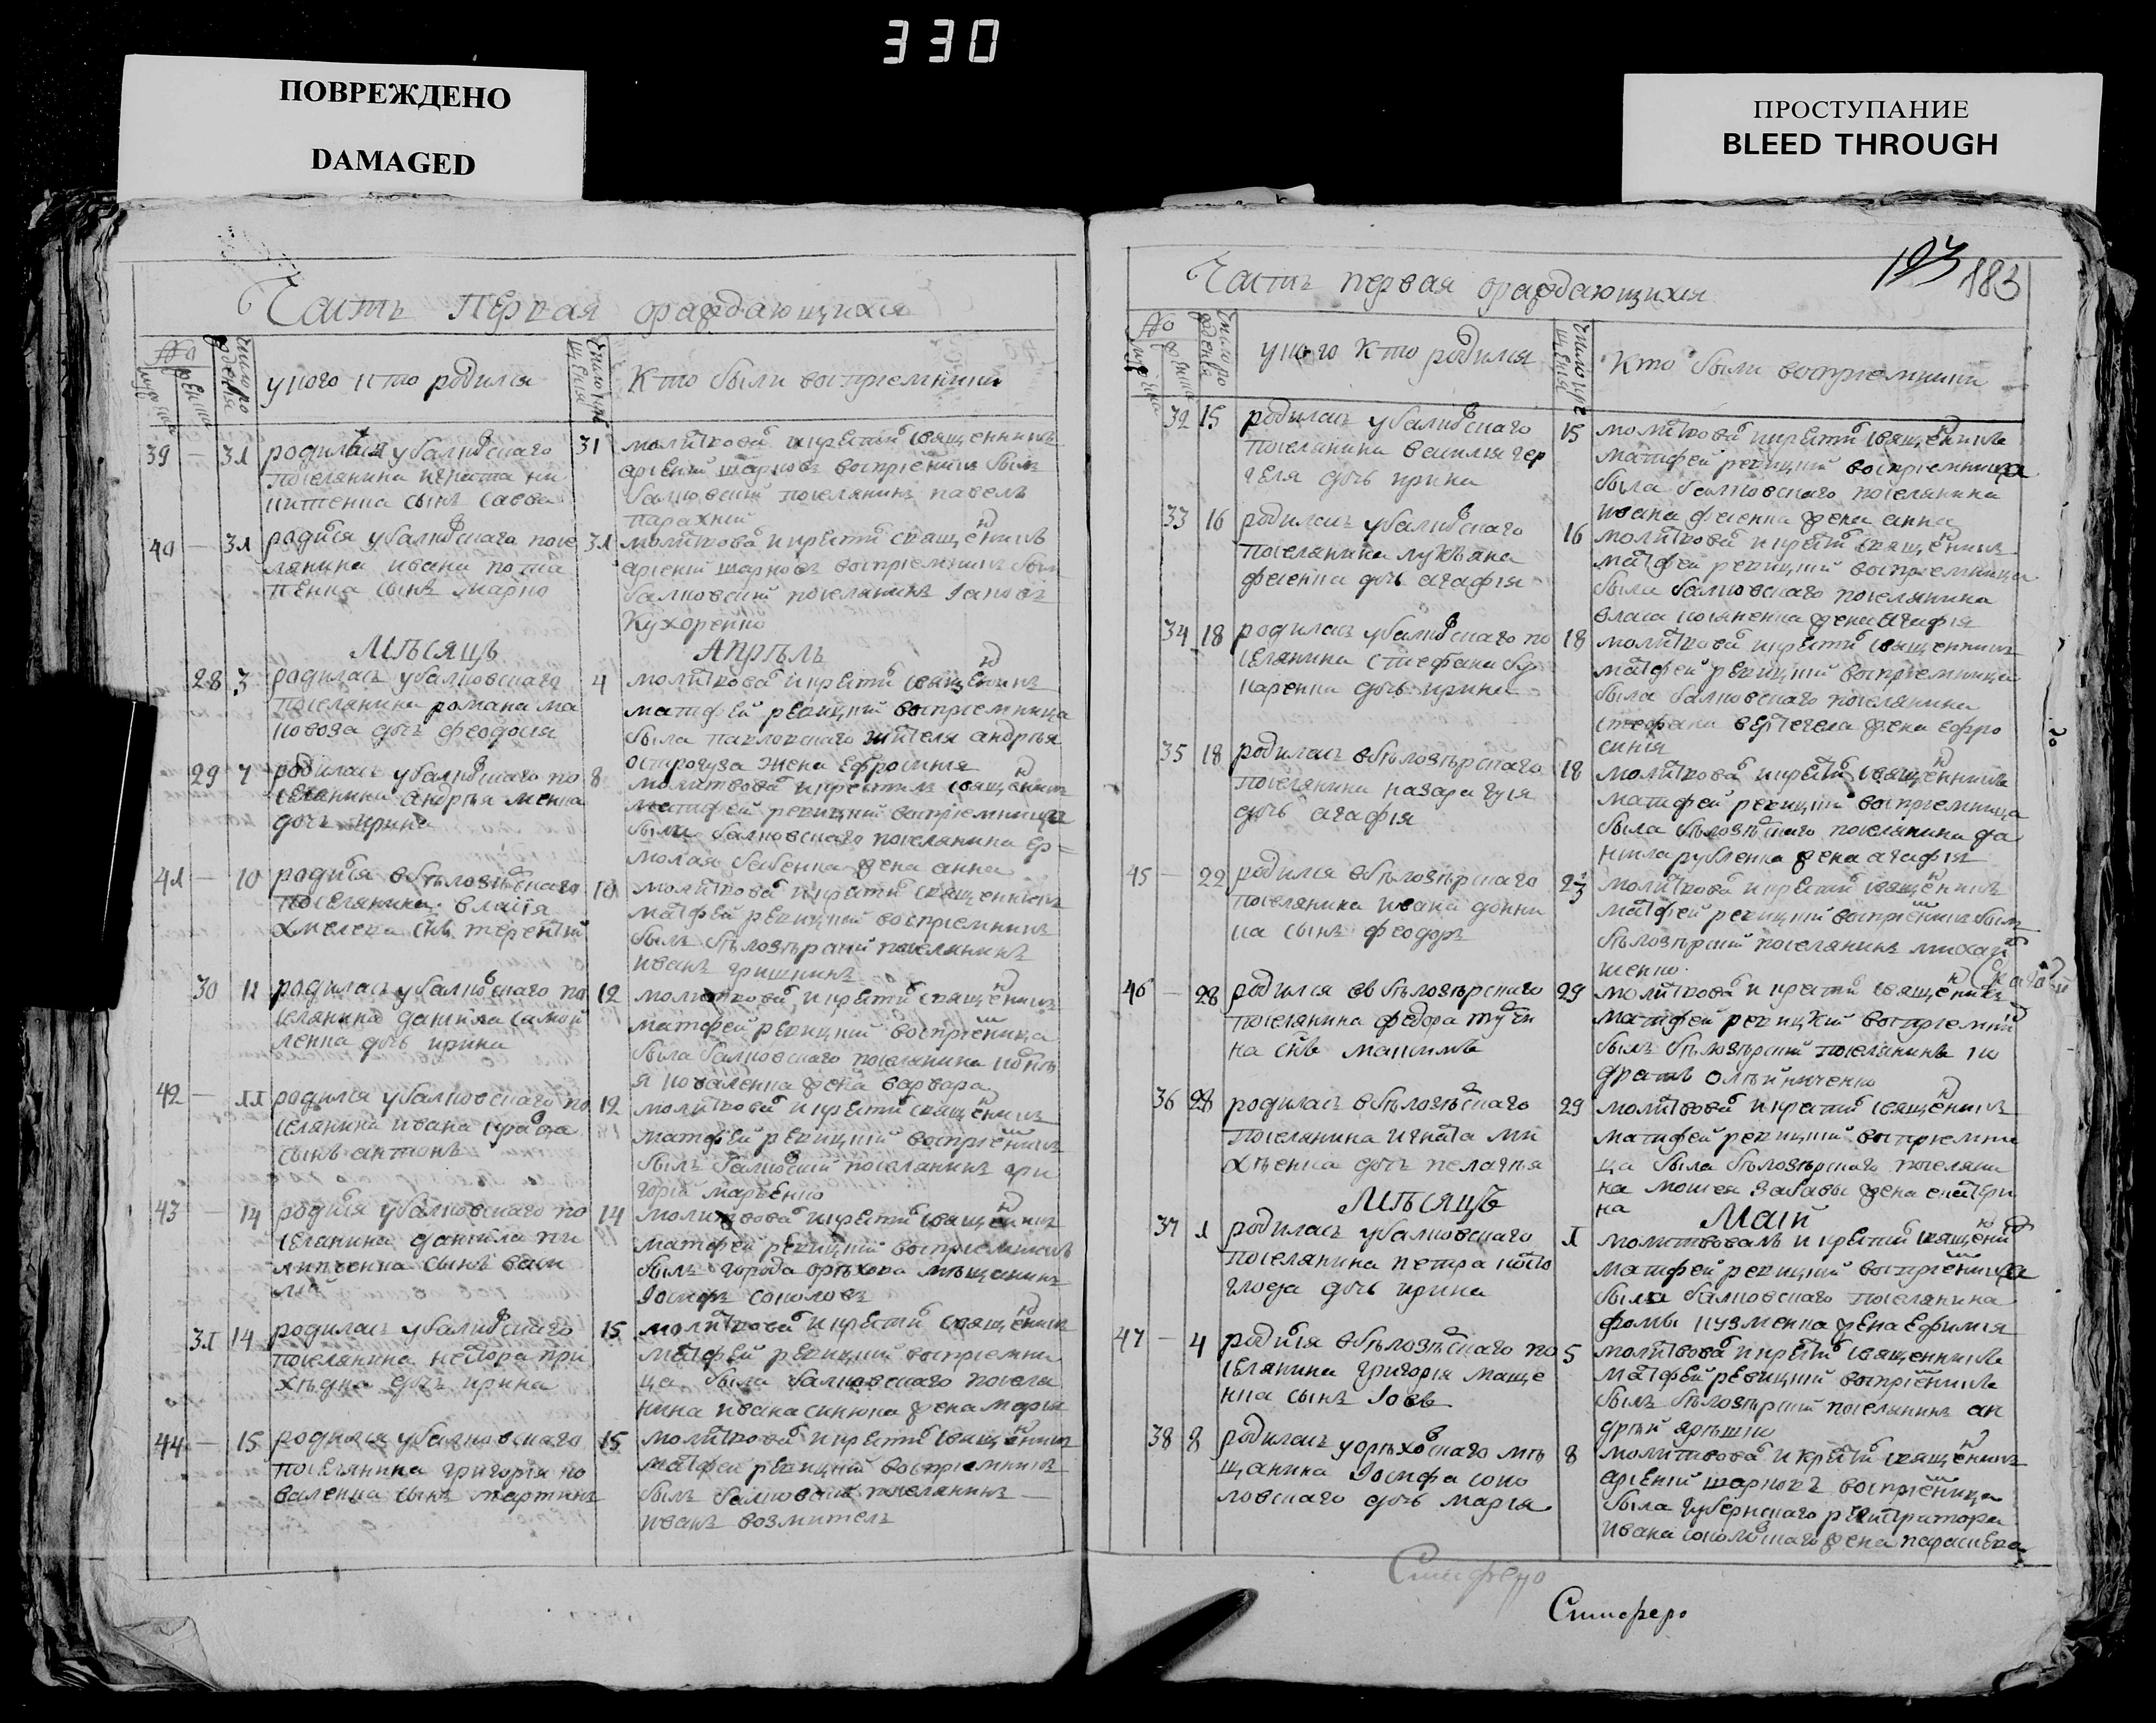 330
ПОВРЕЖДЕНО
DAMAGED
ПРОСТУПАНИЕ
BLEED THROUGH
Часть Первая ораждающихся
No
у кого кто родился
Кто были восприемники
39 — 31 родился у балковскаго
поселянина игната ни
китенка сынъ савва
31 молитвовал и крестил священникъ
арсений шарновъ восприемникъ былъ
балковский поселянинъ павелъ
40 — 31 родился у балковскаго посе
лянина ивана пота
пенка сынъ марко
31 молитвовал и крестил священникъ
арсений шарновъ восприемникъ был
балковский поселянинъ Iаковъ
Кухоренко
Мѣсяцъ Апрѣль
28 3 родилась у балковскаго
поселянина романа ма
ковоза дочь феодосия
4 молитвовал и крестил священникъ
матфей рекицкий восприемница
была павловскаго жителя андрѣя
остроуза жена ефросиния
29 7 родилась у балковскаго по
селянина андрѣя менка
дочь ирина
8 молитвовал и крестилъ священникъ
матфей рекицкий восприемница
была балковскаго поселянина ер=
молая бабенка жена анна
41 — 10 родился в бѣлозѣрскаго
поселянина власия
хмелека снъ терентий
10 молитвовал и крестил священникъ
матфей рекицкий восприемникъ
былъ бѣлозѣрский поселянинъ
иванъ гришнинъ
30 11 родилась у балковскаго по
селянина данила самой
ленка дочь ирина
12 молитвовал и крестил священникъ
матфей рекицкий восприемница
была балковскаго поселянина
я коваленка жена варвара
42 — 11 родился у балковскаго по
селянина ивана кравца
сынъ антонъ
12 молитвовал и крестил священникъ
матфей рекицкий восприемникъ
былъ балковский поселянинъ гри
горий марченко
43 — 14 родился у балковскаго по
селянина данила пи
липченка сынъ васи
лий
14 молитвовал и крестил священникъ
матфей рекицкий восприемникъ
былъ города орѣхова мѣщанинъ
Iосифъ соколовъ
31 14 родилась у балковскаго
поселянина нестора при
хѣдка дочь ирина
15 молитвовал и крестил священникъ
матфей рекицкий восприемни
ца была балковскаго поселя
нина ивана синюка жена мария
44 — 15 родился у балковскаго
поселянина григория ко
валенка сынъ мартинъ
15 молитвовал и крестил священникъ
матфей рекицкий восприемникъ
былъ балковский поселянинъ —
иванъ возмитель
Часть первая ораждающихся
193 183
No
у кого кто родился
Кто были восприемники
32 15 родилась у балковскаго
поселянина василия гер
геля дочь ирина
15 молитвовал и крестил священникъ
матфей рекицкий восприемница
была балковскаго поселянина
ивана фесенка жена анна
33 16 родилась у балковскаго
поселянина лукѣяна
фесенка дочь агафия
16 молитвовал и крестил священникъ
матфей рекицкий восприемница
была балковскаго поселянина
власа жена агафия
34 18 родилась у балковскаго по
селянина стефана бу
наренка дочь ирина
18 молитвовал и крестил священникъ
матфей рекицкий восприемница
была балковскаго поселянина
стефана вертегела жена ефро
синия
35 18 родилась в бѣлозѣрскаго
поселянина назара гуся
дочь агафия
18 молитвовал и крестил священникъ
матфей рекицкий восприемница
была бѣлозѣрскаго поселянина да
нила рубленка жена агафия
45 — 22 родился в бѣлозѣрскаго
поселянина ивана донни
ка сынъ феодоръ
23 молитвовал и крестил священникъ
матфей рекицкий восприемникъ былъ
бѣлозѣрский поселянинъ михаил
46 — 28 родился в бѣлозѣрскаго
поселянина федора тучи
на снъ максимъ
29 молитвовал и крестил священникъ
матфей рекицкий восприемник
былъ бѣлозѣрский поселянинъ ко
дратъ олѣйниченко
36 28 родилась в бѣлозѣрскаго
поселянина игната ми
хѣенка дочь пелагѣя
29 молитвовал и крестил священникъ
матфей рекицкий восприемни
ца была бѣлозѣрскаго поселяни
на мойсея забавы жена екатери
на
Мѣсяцъ Май
37 1 родилась у балковскаго
поселянина петра косо
глоза дочь ирина
1 молитвовалъ и крестил священник
матфей рекицкий восприемница
была балковскаго поселянина
фомы кузменка жена ефимия
47 — 4 родился в бѣлозѣрскаго по
селянина григория маще
нка сынъ Iовъ
5 молитвовал и крестил священникъ
матфей рекицкий восприемникъ
былъ бѣлозѣрский поселянинъ ан
дрѣй ярѣшко
38 8 родилась у орѣховскаго мѣ
щанина Iосифа соко
ловскаго дочь мария
8 молитвовал и крестил священникъ
арсений шарновъ восприемница
была губернскаго регистратора
ивана соколовскаго жена параскева
Симферо
Симферо